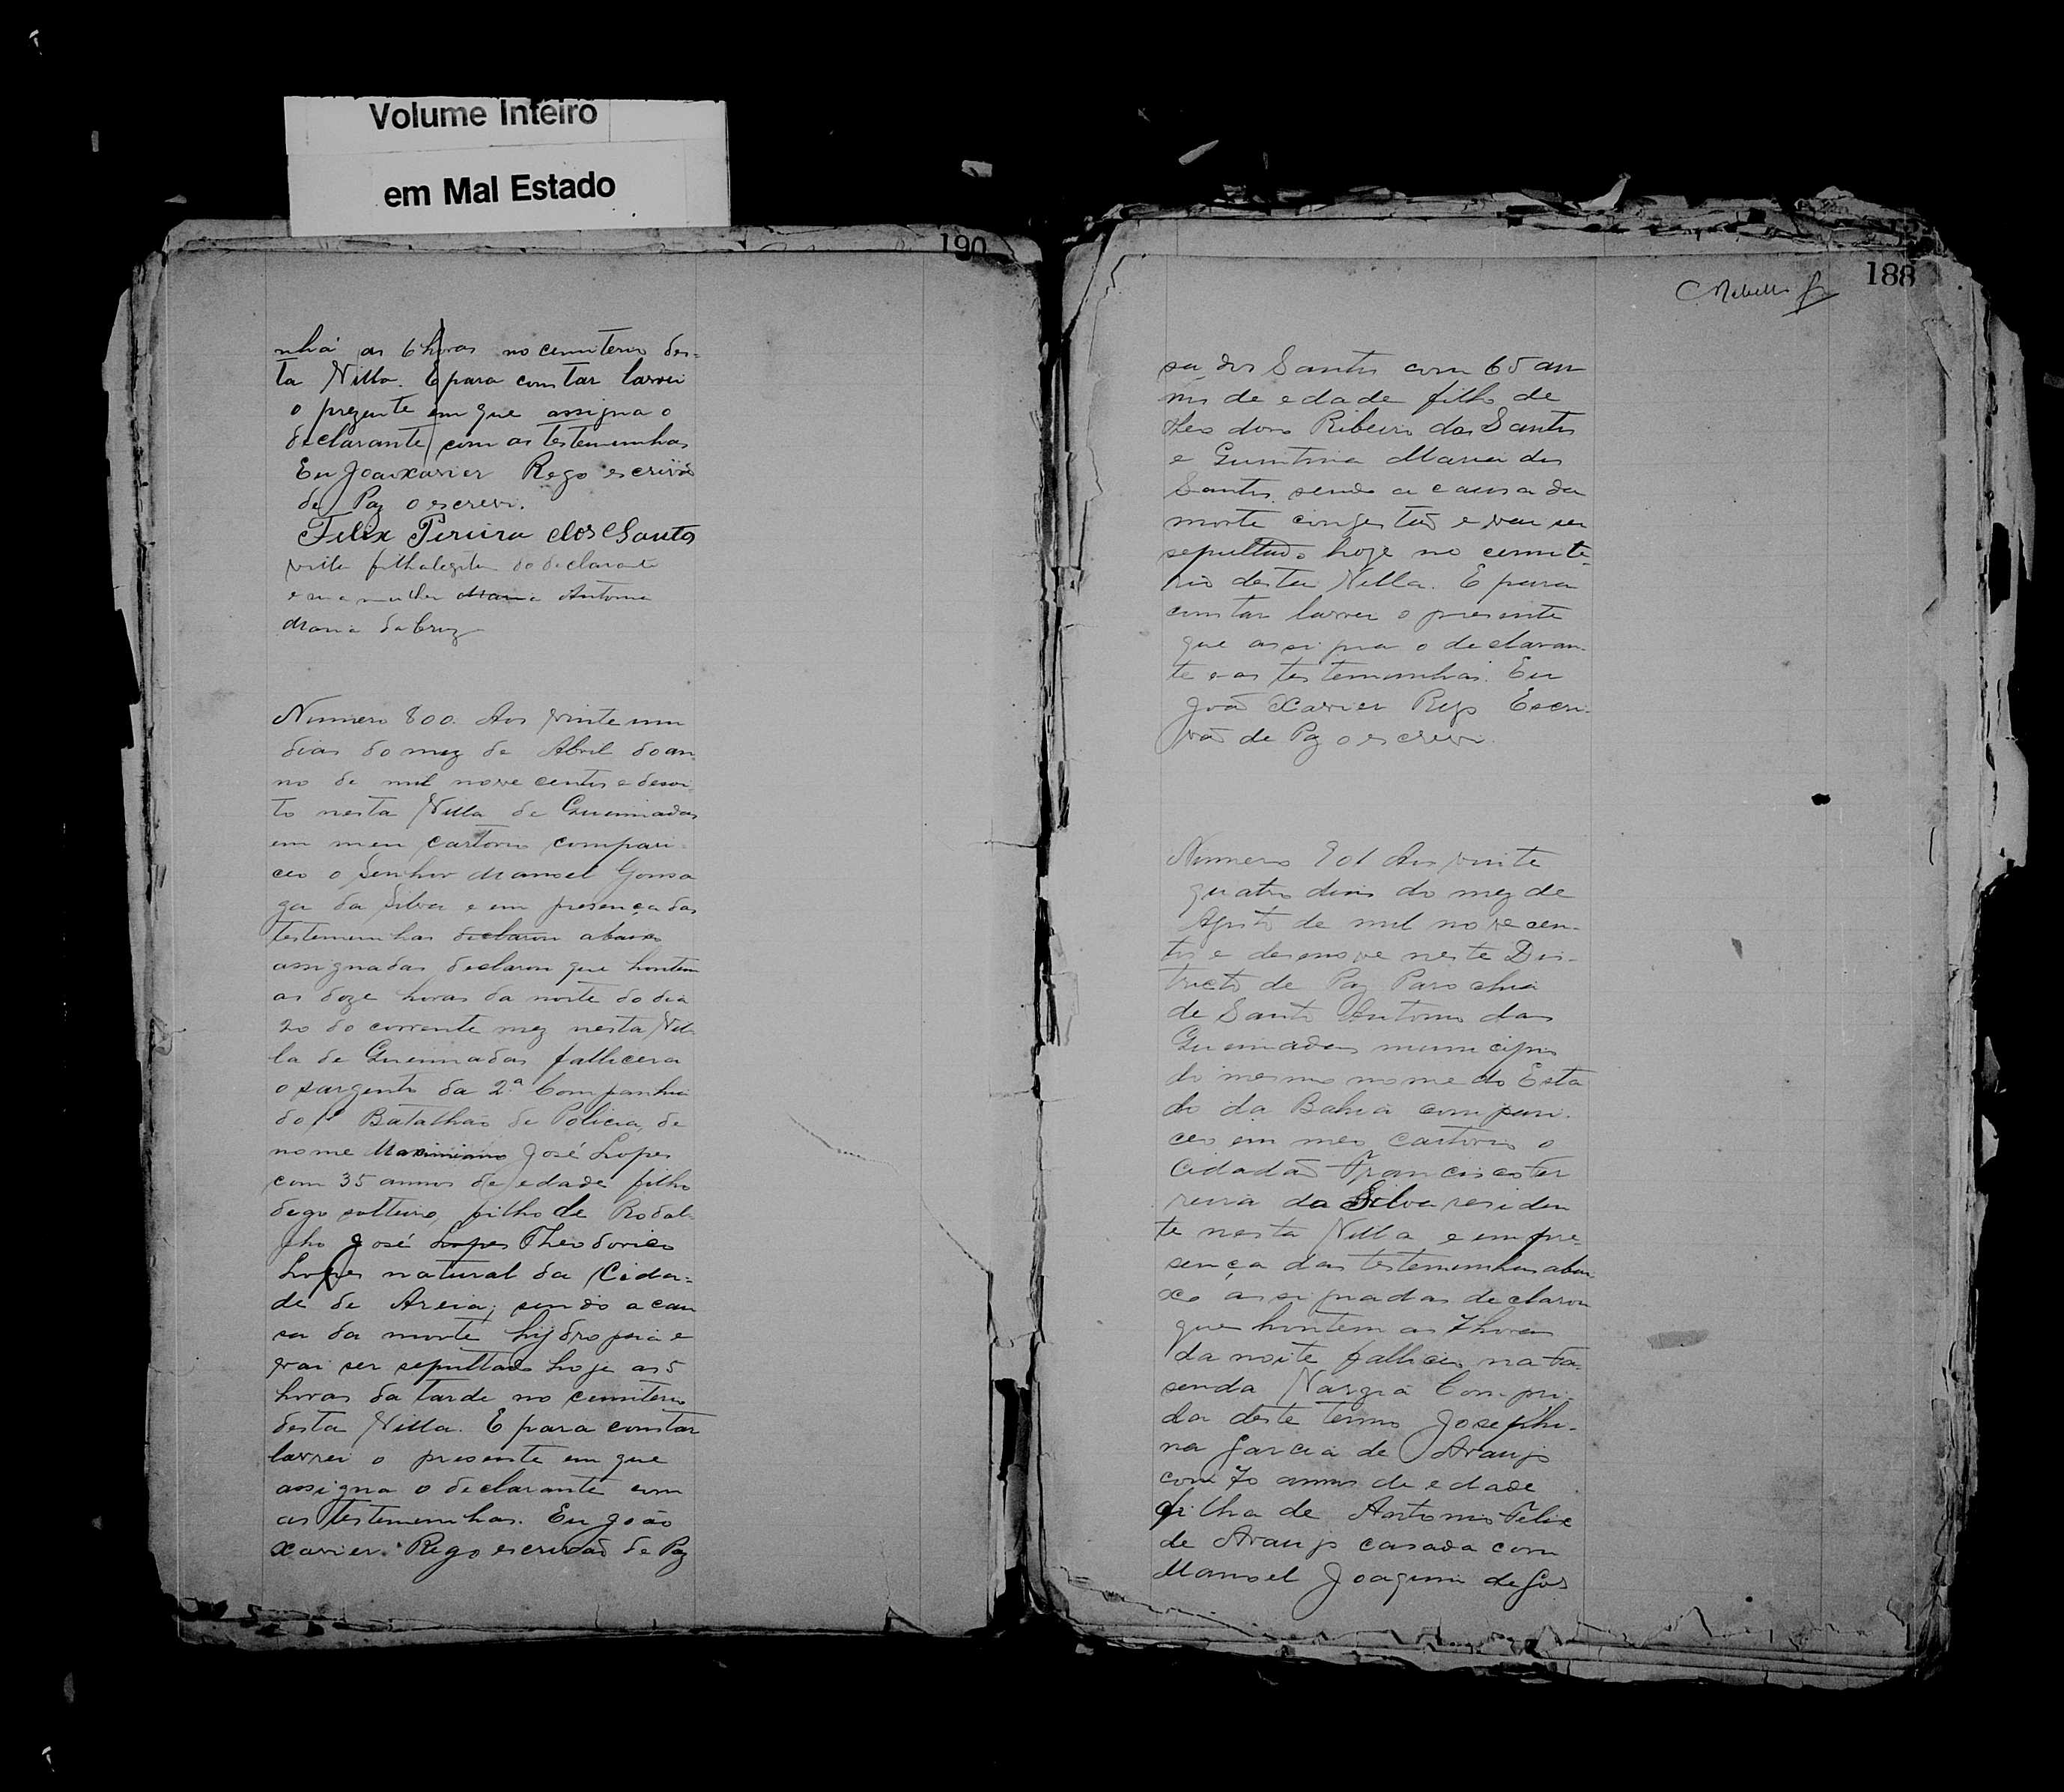 Volume Inteiro
em Mal Estado
190
nhã as 6 horas no cemiterio des-
ta Villa. E para constar lavrei
o prezente em que assigna o
declarante com as testemunhas
Eu João Xavier Rego escrivão
de Paz o escrevi.
Felix Pereira dos Santos
filha legitima do declarante
e sua mulher Maria Antonia
Maria da Cruz
Numero 800. Aos vinte um
dias do mez de Abril do an-
no de mil nove centos e desoi
to nesta Villa de Queimadas
em meu cartorio compari-
ceo o Senhor Manoel Gonsa
ga da Silva e em presença das
testemunhas declarou abaixo
assignadas declarou que hontem
as doze horas da noite do dia
20 do corrente mez nesta Vil-
la de Queimadas fallicera
o sargento da 2ª Companhia
do 1º Batalhão de Policia, de
nome Maximiano José Lopes
com 35 annos de edade filho
digo solteiro, filho de Rodol-
pho José Lopes Theodorico
Lopes natural da Cida-
de de Areia; sendo a cau
sa da morte hydropsia e
vai ser sepultado hoje as 5
horas da tarde no cemiterio
desta Villa. E para constar
lavrei o presente em que
assigna o declarante com
as testemunhas. Eu João
Xavier Rego escrivão de Paz
188
sa dos Santos com 65 an
nos de edade filho de
Theodoro Ribeiro dos Santos
e Maria dos
Santos sendo a causa da
morte congestão e vai ser
sepultado hoje no cemite-
rio desta Villa. E para
constar lavrei o presente
que assigna o declaran-
te e as testemunhas. Eu
João Xavier Rego Escri-
vão de Paz o escrevi.
Numero 801 Aos vinte
quatro dias do mez de
Agosto de mil nove cen-
tos e desenove neste Dis-
tricto de Paz Parochia
de Santo Antonio das
Queimadas municipio
do mesmo nome do Esta
do da Bahia compari-
ceo em meo cartorio o
Cidadão Francisco Fer
reira da Silva residen
te nesta Villa e em pre-
sença das testemunhas abai-
xo assignadas declarou
que hontem as 7 horas
da noite falliceo na fa-
senda Vargia Compri-
da deste termo Josephi-
na Garcia de Araujo
com 70 annos de edade
filha de Antonio Felix
de Araujo casada com
Manoel Joaquim de Goes